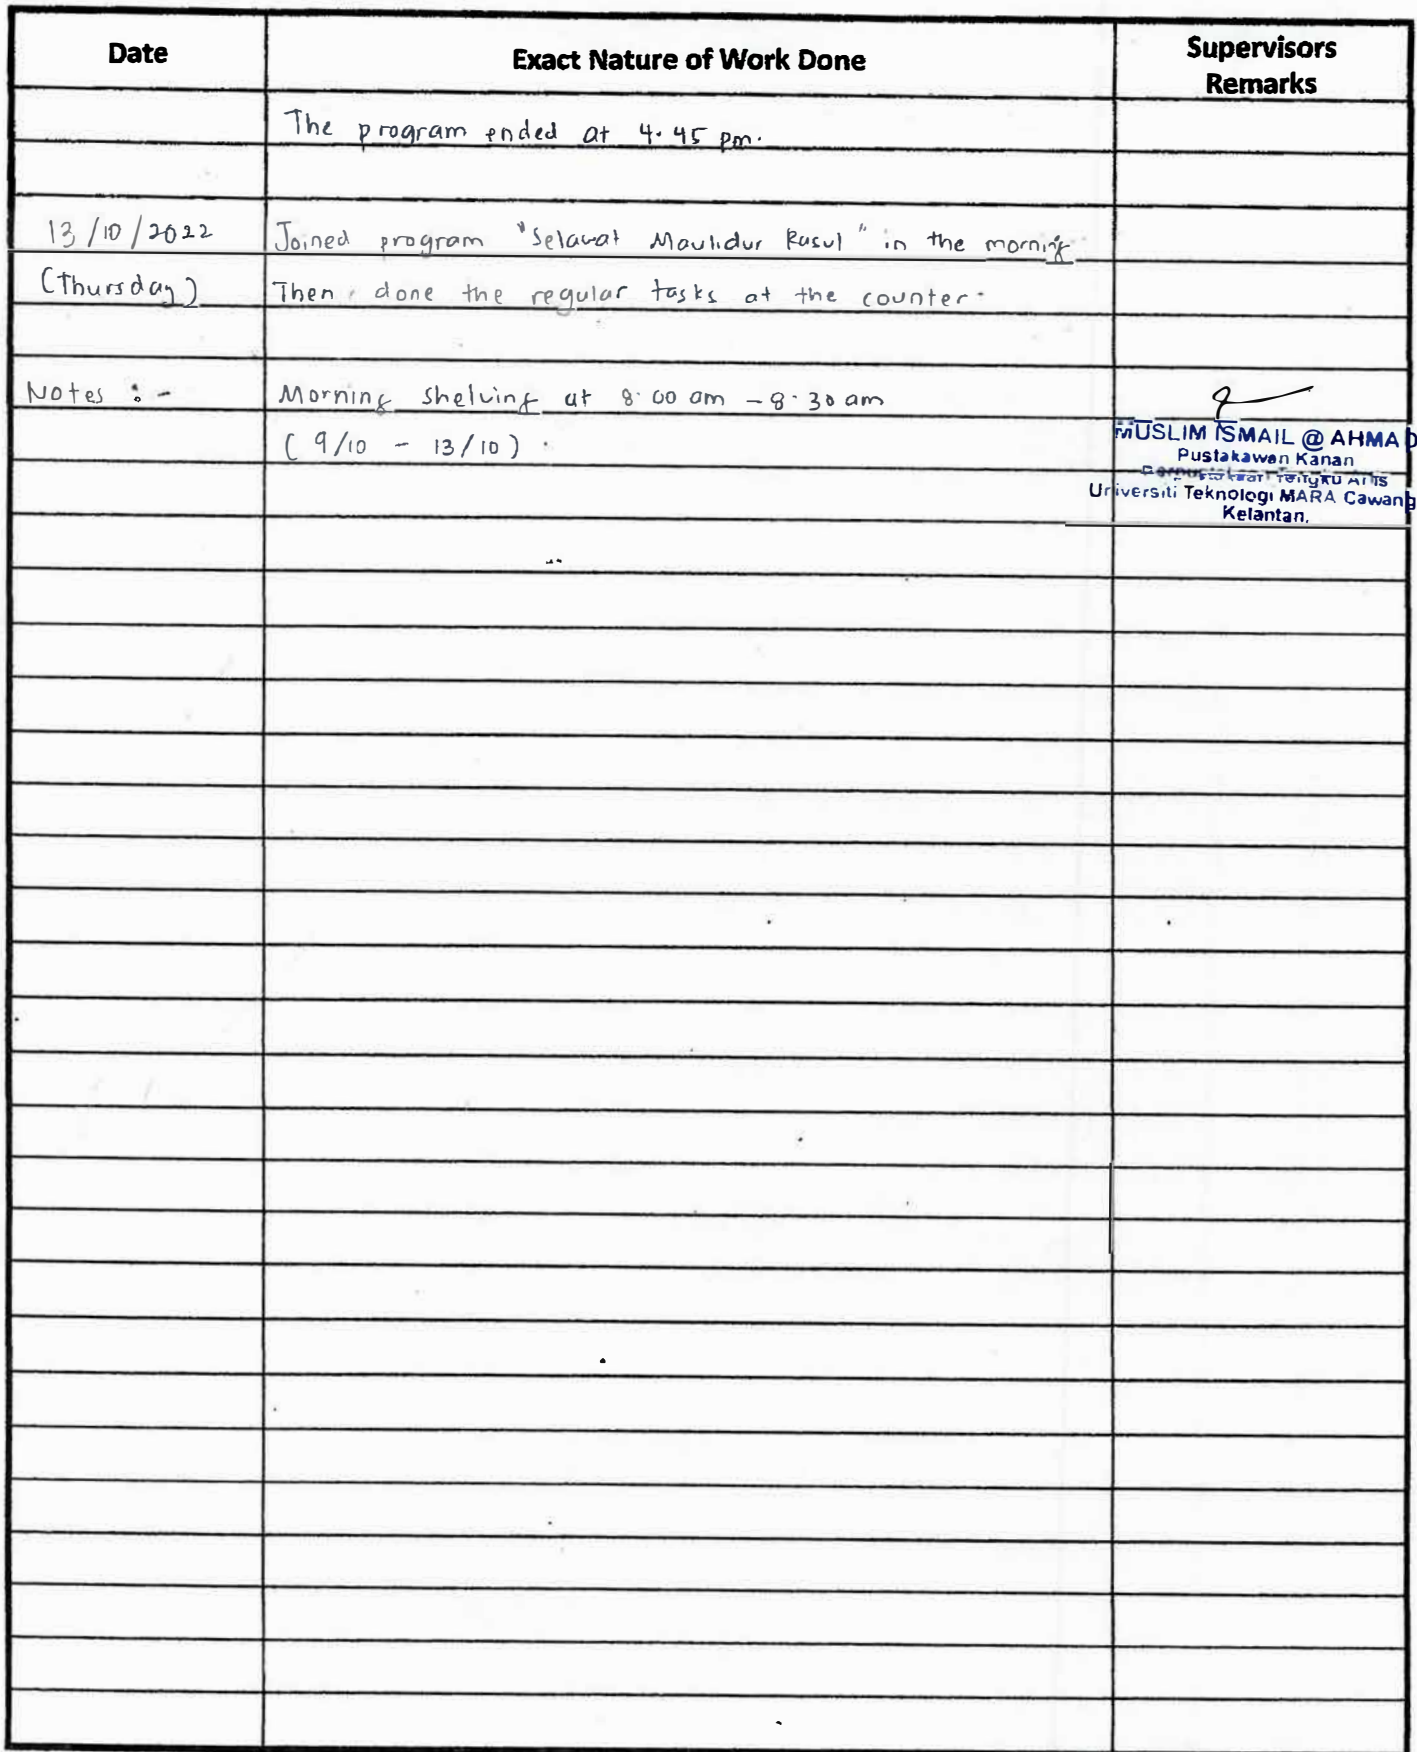 Date Exact Nature of Work Done Supervisors
Remarks
The program ended at 4.45 pm.
13/10/2022 Joined program "Selawat Maulidur Rasul" in the morning
(Thursday) Then, done the regular tasks at the counter.
Notes :- Morning shelving at 8.00 am - 8.30 am
(9/10 - 13/10).
MUSLIM ISMAIL @ AHMAD
Pustakawan Kanan
Tengku Anis
Universiti Teknologi MARA Cawang
Kelantan.